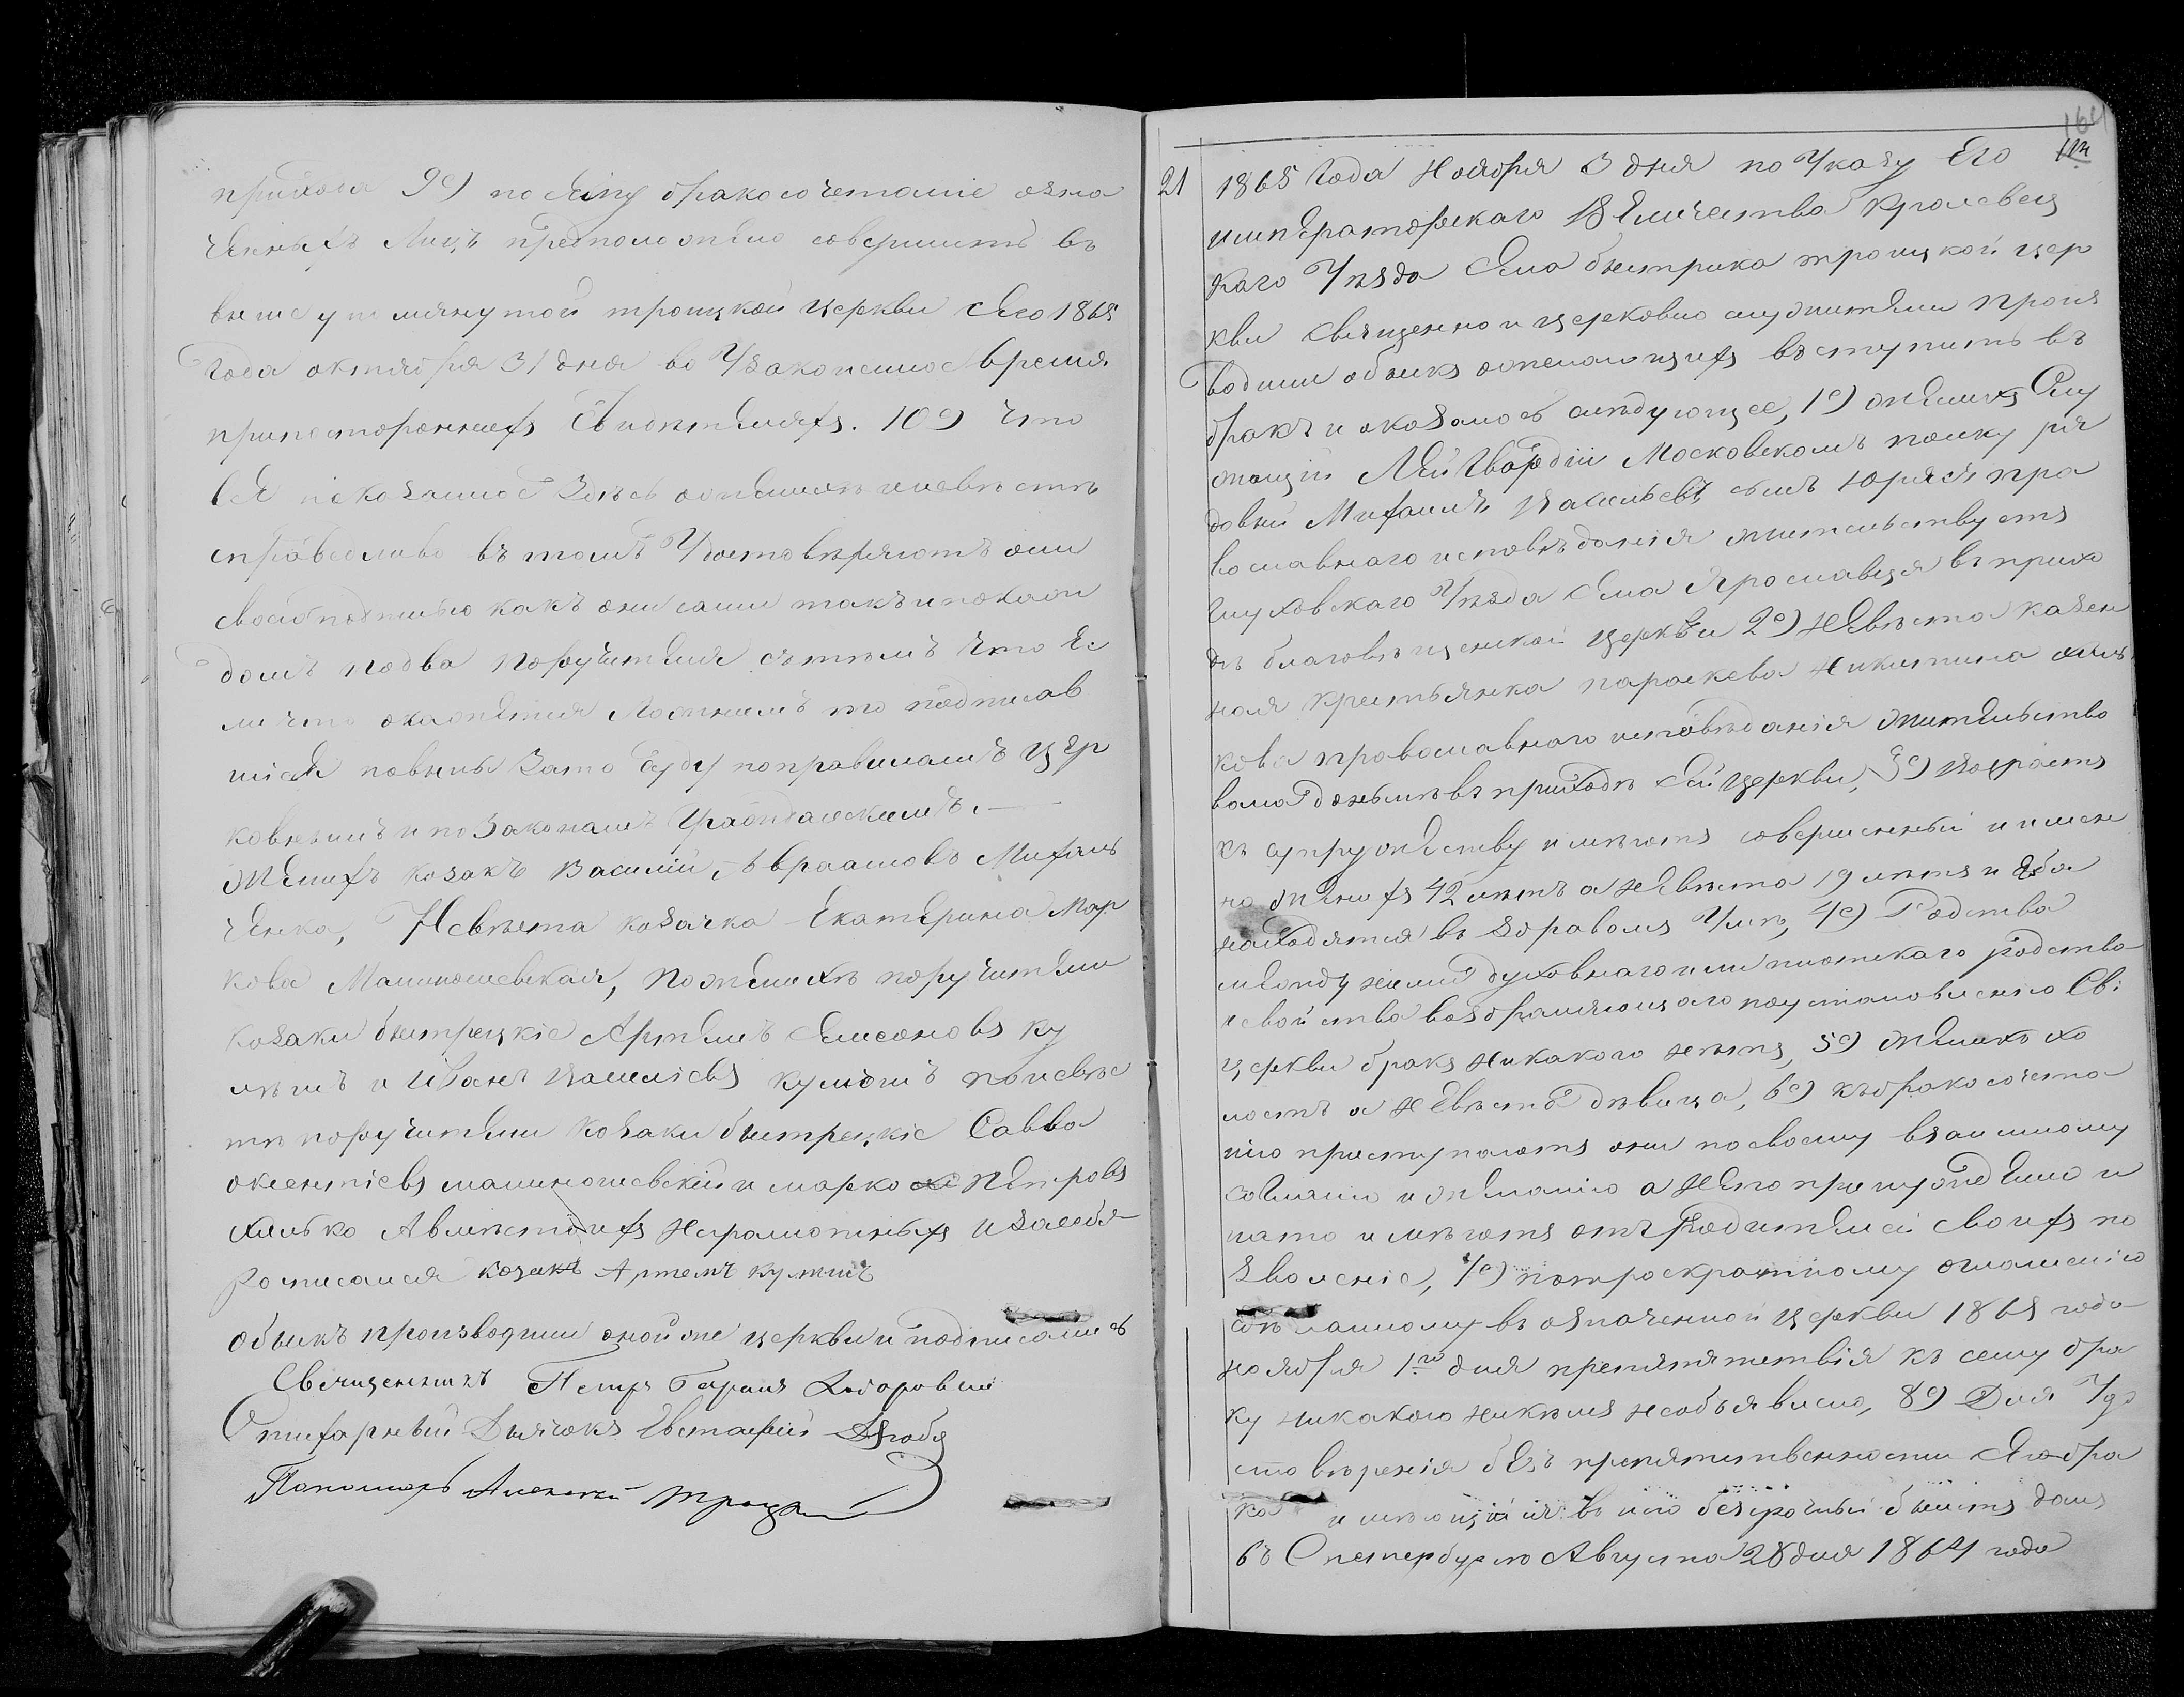 прихода 9е) по сему бракосочетаніе озна
ченныхъ Лицъ предположено совершить въ
вышеупомянутой троицкой церкви сего 1865
года октября 31 дня во Узаконенное время
припостороннихъ Свидѣтеляхъ. 10е) что
всё показанное здѣсь оженихѣ иневѣстѣ
справедливо въ томъ Удостовѣряютъ они
своеюподписью какъ они сами такъ ипокаж
домъ подва поручителя сътѣмъ что ес
ли что окажется Ложнымъ то подписав
шіеся повинны Зато Суду поправиламъ цер
ковнымъ и по Законамъ Гражданскимъ. —
Женихъ козакъ Василій Авраамовъ Михаль
ченко, Невѣста козачка Екатерина Мар
кова Малиношевская, Поженихѣ поручители
козаки быстрецкіе Артемъ Самсоновъ ку
лѣшъ и Иванъ Василіевъ кулѣшъ поневѣс
тѣ поручители Козаки быстрецкіе Савва
малиношевскій и марко Петровъ
хилько Авмѣстоихъ Неграмотныхъ изасебя
Росписался козакъ Артемъ кулѣшъ
обыскъ производили оной же церкви и подписались
Священникъ Петръ
Стихарный Дьячокъ Евстафій Дзюба
Пономарь Алексѣй Троца
164
21 1865 Года Ноября 3 дня по Указу Его
императорскаго Величества Кролевец
каго Уѣзда Села быстрика троицкой цер
кви Священно и церковно служители произ
водили обыскъ ожелающихъ вступить въ
бракъ и оказалось слѣдующее, 1е) женихъ Слу
жащій Лейбгвардіи Московскомъ полку ря
довый Михаилъ Васильевъ сынъ Юрася пра
вославнаго исповѣданія жительствуетъ
Глуховскаго Уѣзда Села Ярославца въ прихо
дѣ благовѣщенской церкви 2е) Невѣста казен
ная крестьянка параскева Никитина хиль
кова православнаго исповѣданія жительство
вала донынѣ въ приходѣ сей церкви, 3е) Возрастъ
къ супружеству имѣютъ совершенный и имен
но женихъ 42 лѣтъ а Невѣста 19 лѣтъ и оба
находятся въ здравомъ Умѣ, 4е) Родства
между ними духовнаго или плотскаго родства
и свойства возбраняющаго поустановленію Св:
церкви бракъ никакого нѣтъ, 5е) Женихъ хо
лостъ а Невѣста дѣвица, 6е) къбракосочета
нію приступаютъ они посвоему взаимному
согласію и желанію а не попринужденію и
нато имѣютъ отъ Родителей своихъ по
зволеніе, 7е) потроекратному оглашенію
сдѣланному въ означенной церкви 1865 года
ноября 1го дня препятствія къ сему бра
ку никакого никѣмъ необъявлено, 8е) Для Удо
стовѣренія безъ препятственности Сего бра
ка имѣющійся въ нею безсрочный билетъ данъ
въ Спетербургѣ Августа 28 дня 1864 года